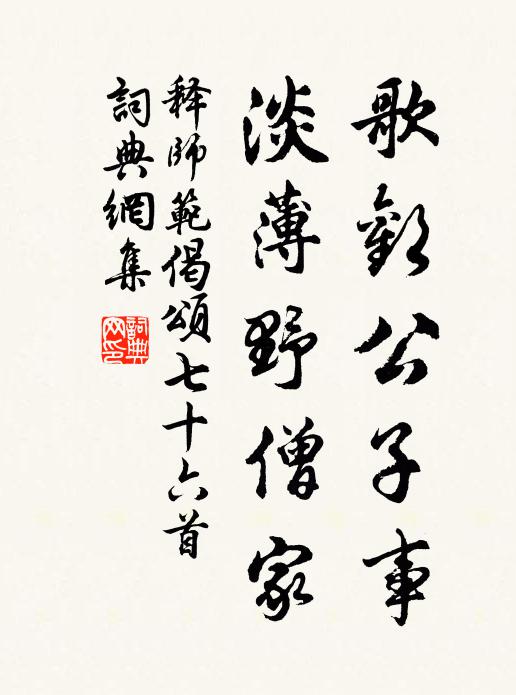 歌歡公子事
淡薄野僧家
释師範偈頌七十六首
詞典網集
詞典网印